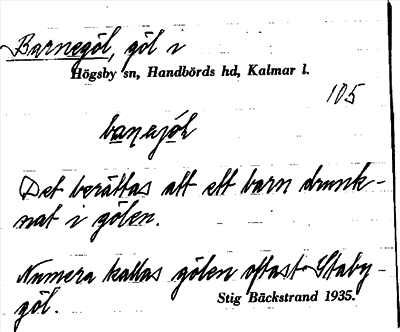 Barnegöl, göl i
Högsby sn, Handbörds hd, Kalmar l.
105
Det berättas att ett barn drunk-
nat i gölen.
Numera kallas gölen oftast Staby-
göl.
Stig Bäckstrand 1935.